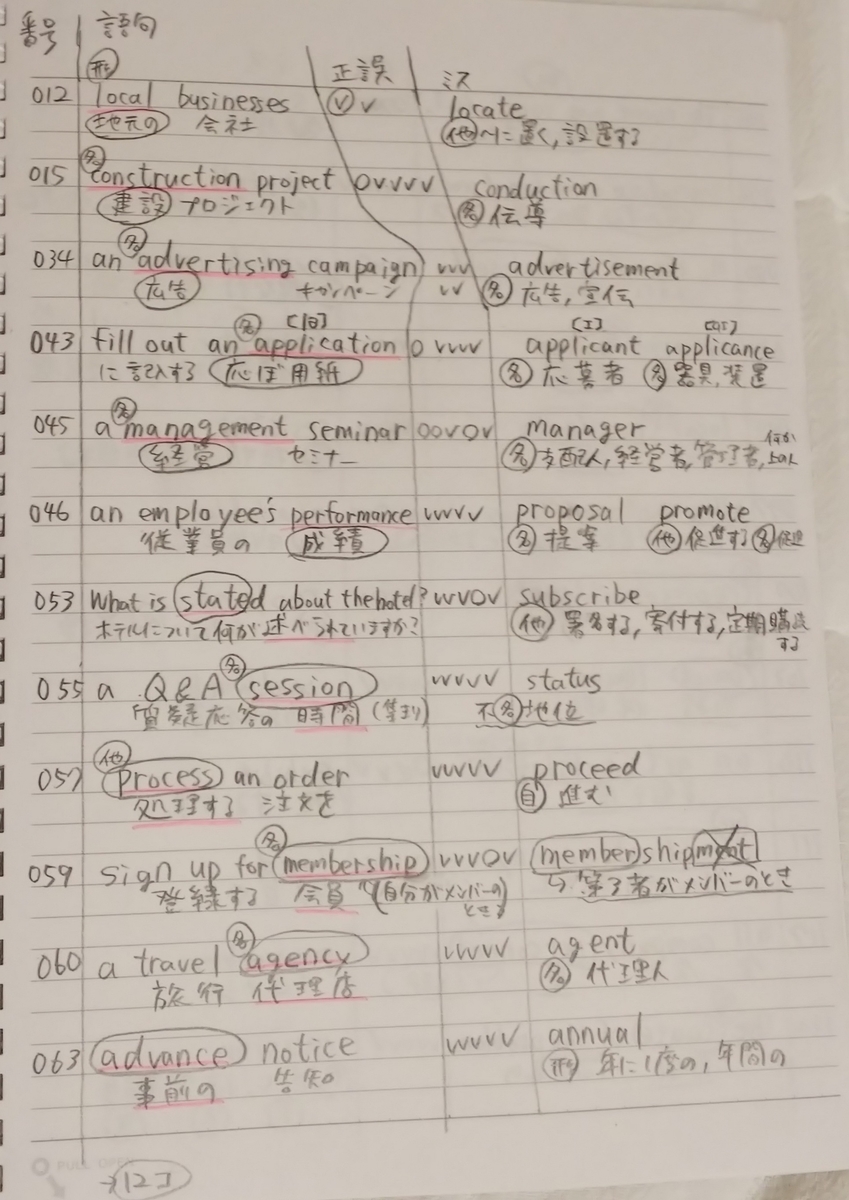 番号 語句
形 正誤 注
012 local businesses ⓥ v locate
地元の 会社 他 〜に置く, 設置する
名
015 construction project 0vvvv conduction
建設 プロジェクト 名 伝導
名
034 an advertising campaign vvv advertisement
広告 キャンペーン vv 名 広告, 宣伝
名
043 fill out an application 0 vvvv applicant applicance
に記入する 応ぼ用紙 名 応募者 名 器具, 装置
名
045 a management seminar 00v0v manager
経営 セミナー 名 支配人, 経営者, 管理者,
046 an employee's performance vvvv proposal promote
従業員の 成績 名 提案 他 促進する 名 促進
053 What is stated about the hotel? vvv0v subscribe
ホテルについて何が述べられていますか? 他 署名する, 寄付する, 定期購読
する
名
055 a Q&A session vvvv status
質疑応答の 時間 (集まり) 不 名 地位
他
057 process an order vvvvv proceed
処理する 注文を 自 進む
名
059 sign up for membership vvv0v membership
登録する 会員 (自分がメンバーの ↳ 第三者がメンバーのとき
とき)
名
060 a travel agency vvvvv agent
旅行 代理店 名 代理人
063 advance notice vvvvv annual
事前の 告知 形 年に1度の, 年間の
PULL OPEN
→12コ